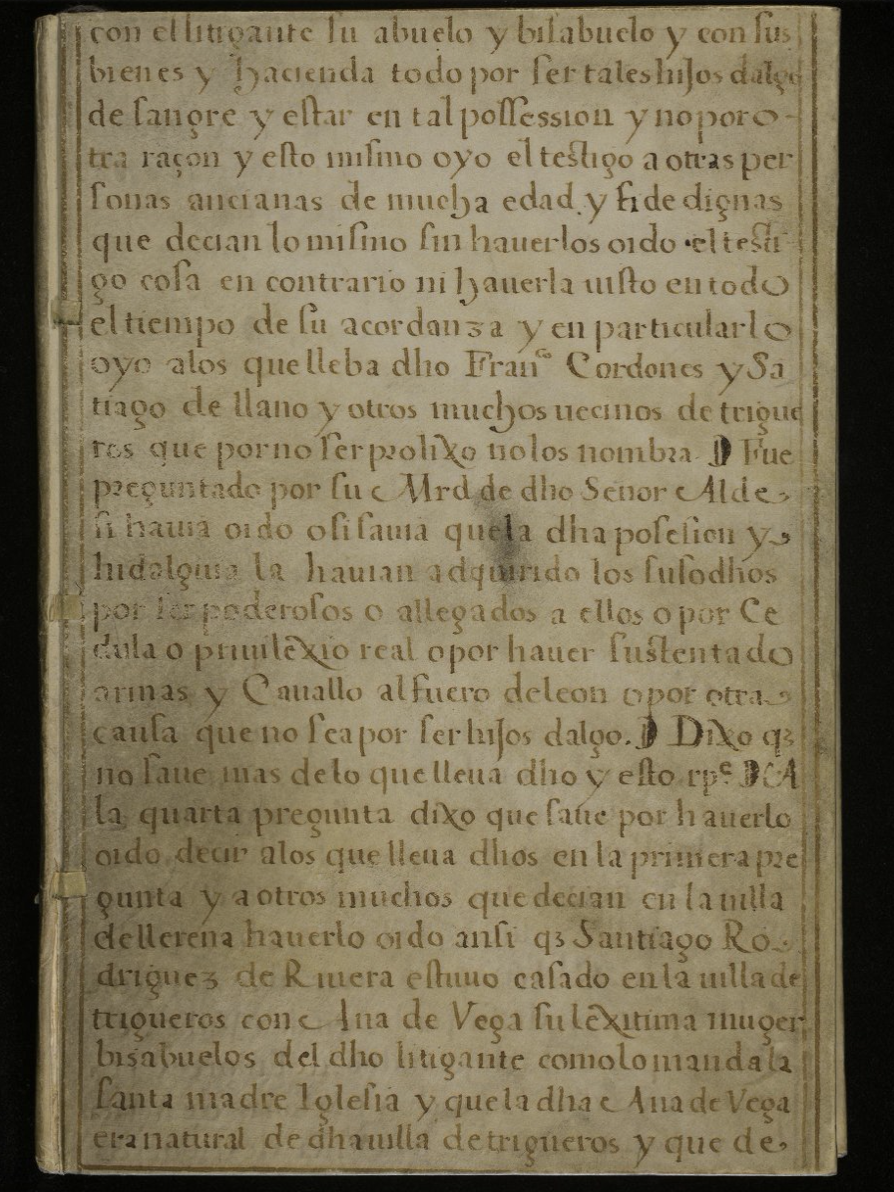 con el litigante su abuelo y bisabuelo y con sus
bienes y hacienda todo por ser tales hijos dalgo
de sangre y estar en tal possession y no por o-
tra raçon y esto mismo oyo el testigo a otras per
sonas ancianas de mucha edad y fidedignas
que decian lo mismo sin hauerlos oido el testi-
go cosa en contrario ni hauerla uisto en todo
el tiempo de su acordanza y en particular lo
oyo a los que lleba dho Franco Cordones y Sa
tiago de llano y otros muchos uecinos de trigue
ros que por no ser prolixo no los nombra. Fue
preguntado por su Mrd de dho Senor Alde
si hauia oido o si sauia que la dha posesion y
hidalguia la hauian adquirido los susodhos
por ser poderosos o allegados a ellos o por Ce
dula o priuilexio real o por hauer sustentado
armas y Cauallo al fuero de leon o por otra
causa que no sea por ser hijos dalgo. Dixo q3
no saue mas de lo que lleua dho y esto rpe A
la quarta pregunta dixo que saue por hauerlo
oido decir a los que lleua dhos en la primera pre
gunta y a otros muchos que decian en la uilla
de llerena hauerlo oido ansi q3 Santiago Ro-
driguez de Riuera estuuo casado en la uilla de
trigueros con Ana de Vega su lexitima muger
bisabuelos del dho litigante como lo manda la
santa madre Iglesia y que la dha Ana de Vega
era natural de dha uilla de trigueros y que de